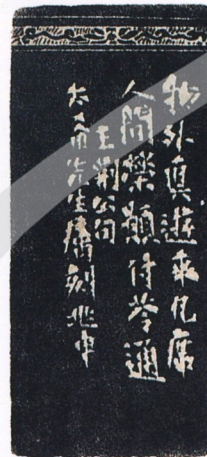 物外真遊來几席
人間榮願付苓通
王荊公句
先生属刻兆申